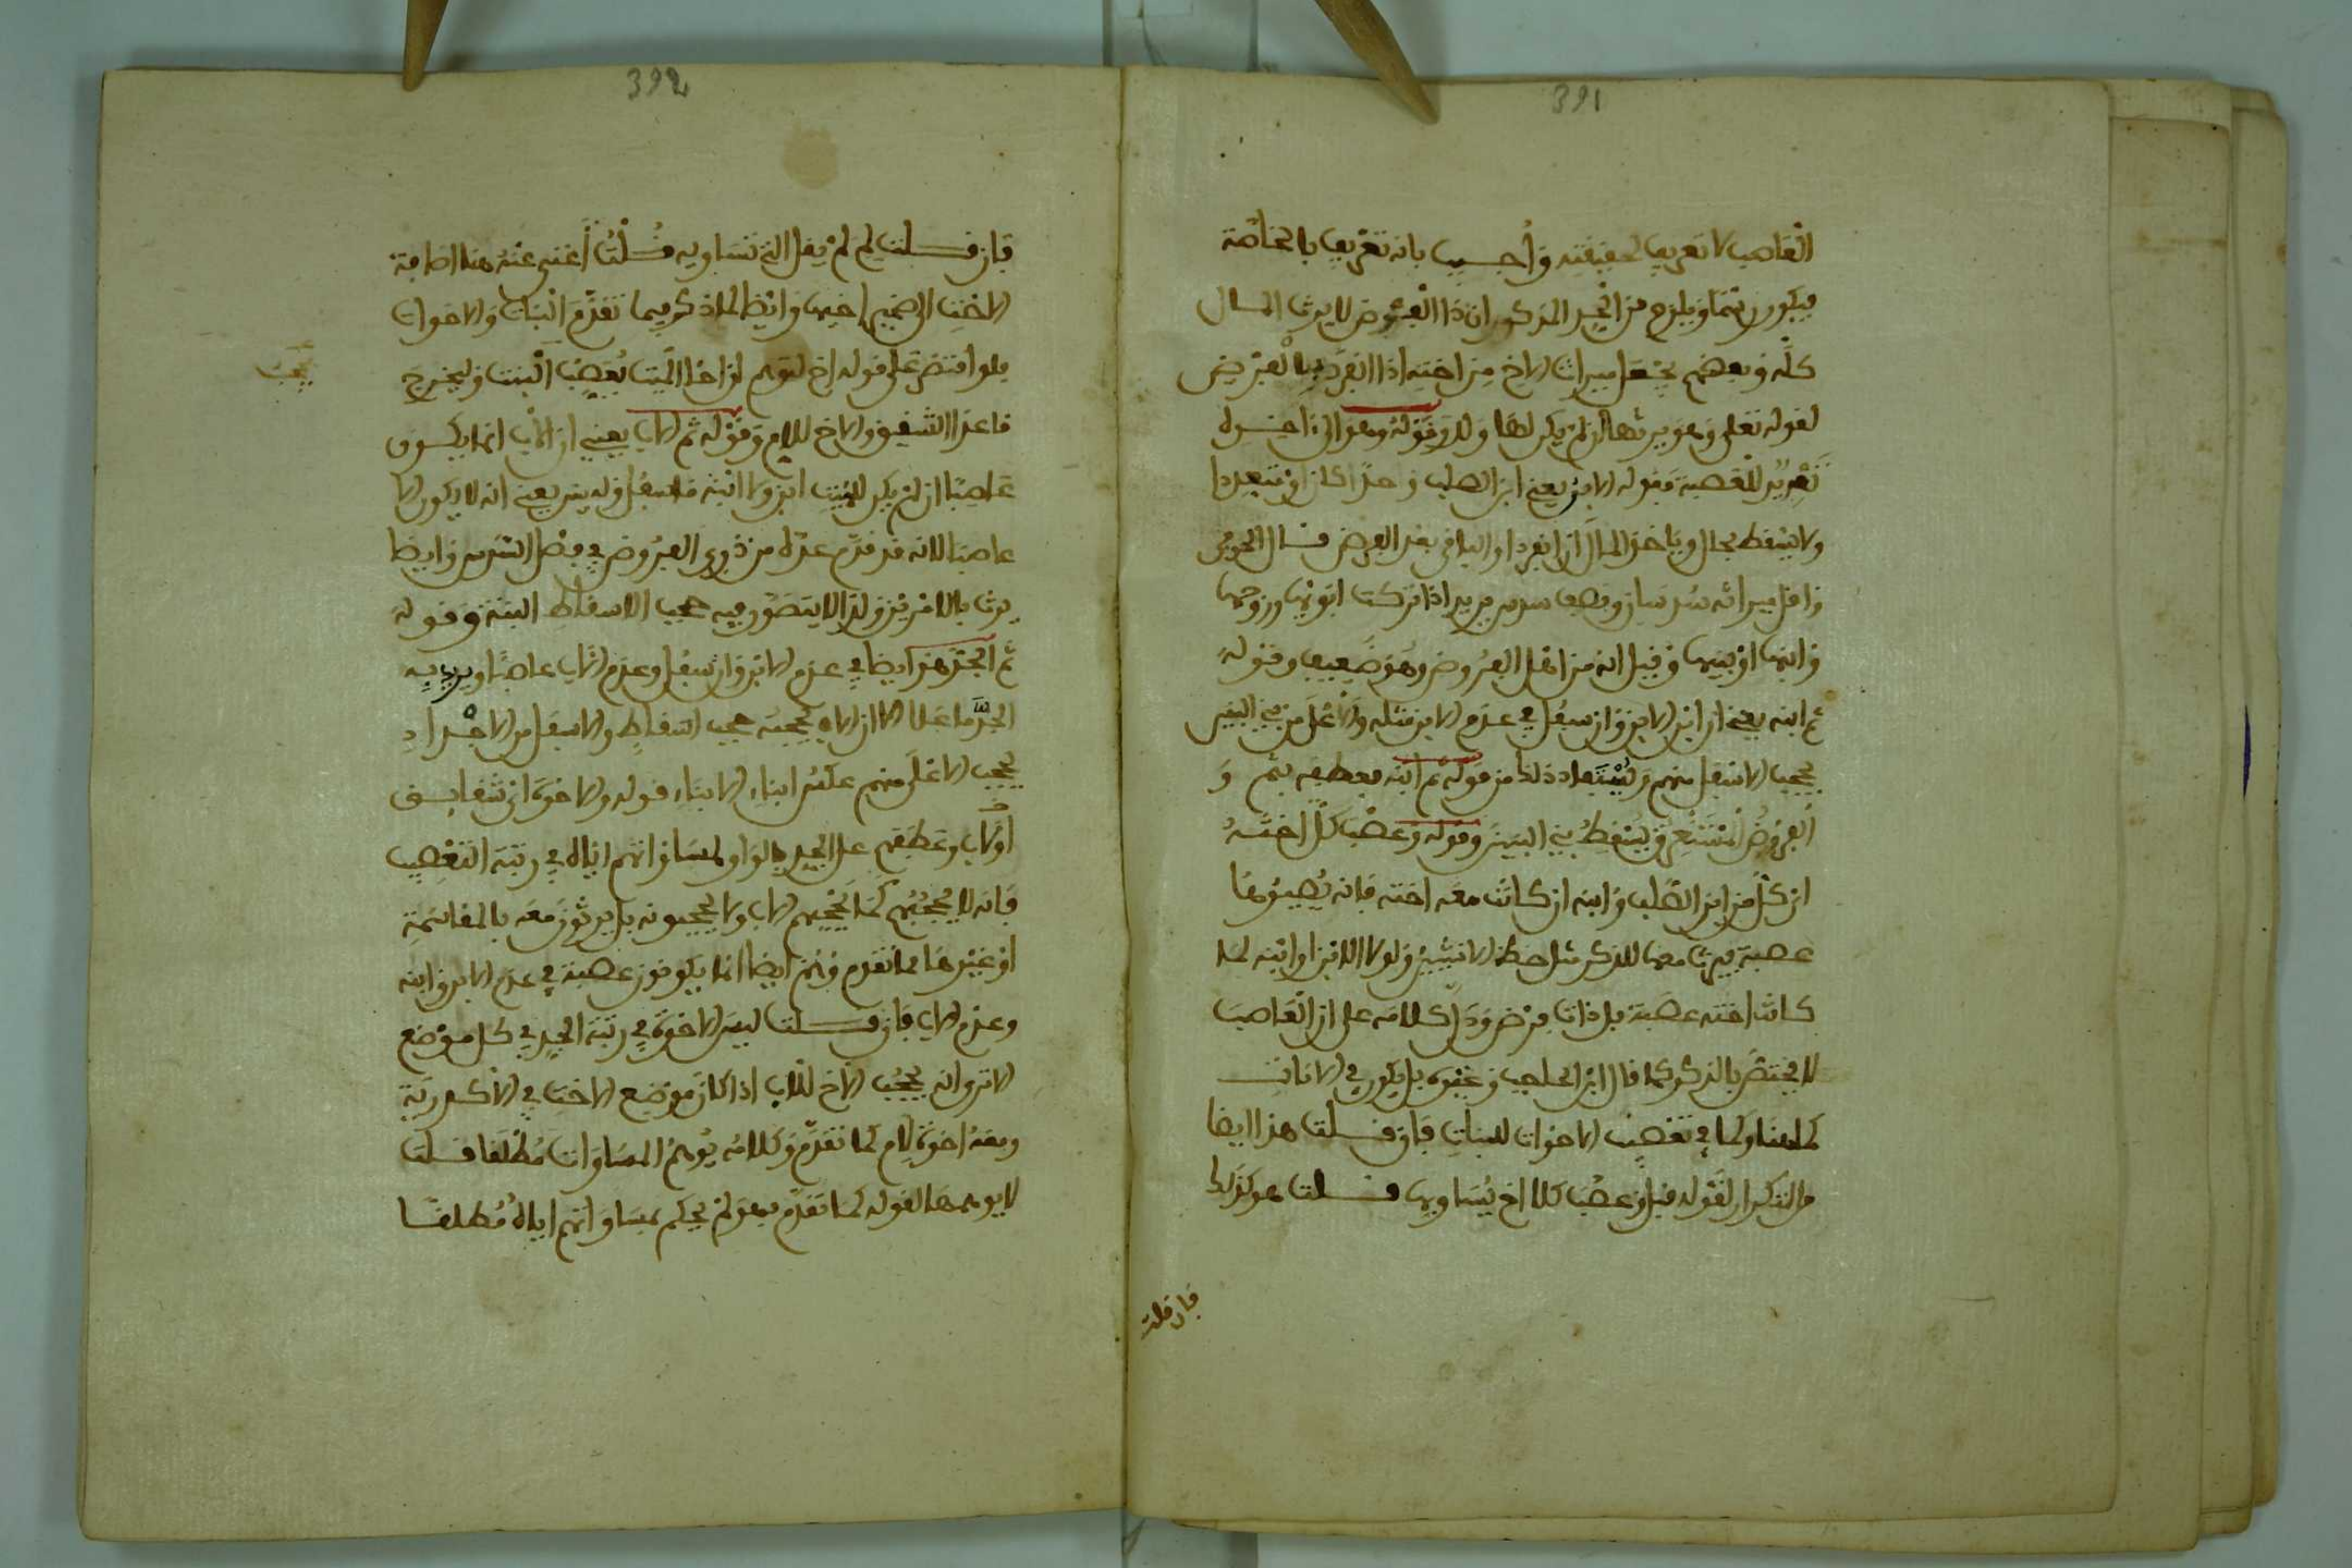 391
العاصب لا تعريف لحقيقته وأجيب بانه تعريف بالخاصة
فيكون رسما ويلزم من الحد المذكور ان ذا الفروض لا يرث المال
كله وبعضهم يجعل ميراث الاخ من اخته اذا انفرد بالفرض
لقوله تعلى وهو يرثها ان لم يكن لها ولد وقوله وهو الابن اخ
تقرير للعصبة فقوله الابن يعني ابن الصلب واحدا كان او متعددا
ولا يسقط بحال وياخذ المال ان انفرد او الباقي بعد الفرض قال الحوفي
واقل ميراثه سدسان ونصف سدس يريد اذا تركت ابويها وزوجها
وابنها او بنيها وقيل انه من اهل الفروض وهو ضعيف وقوله
ثم ابنه يعني ان ابن الابن وان سفل في عدم الابن مثله والاعلى من بني البنين
يحجب الاسفل منهم ويستفاد ذلك من قوله ثم ابنه بعطفه بثم و
الفروض تستغرق يسقط بني البنين وقوله وعصب كل اخته
ان كل من ابن الصلب وابنه ان كانت معه اخته فانه يصيرها
عصبة يرث معها للذكر مثل حظ الانثيين ولولا الابن او ابنه لما
كانت اخته عصبة بل ذات فرض ودل كلامه على ان العاصب
لا يختص بالذكور كما قال ابن الحاجب وغيره بل يكون في الاناث
كما هنا وكما في تعصيب الاخوات للبنات فان قلت هذا ايضا
والتكرار لقوله قبل وعصب كلا اخ يساويها قلت هو كذلك
فان قلت
392
فان قلت لم لم يقل الذي تساويه قلت أغنى عنه هنا اضافة
الاخت الى ضمير اخيها وايضا لما ذكر فيما تقدم البنات والاخوات
فلو اقتصر على قوله اخ لتوهم ان اخا الميت يعصب البنت وليخرج
ما عدا الشقيق والاخ للام وقوله ثم الاب يعني ان الاب انما يكون
عاصبا ان لم يكن للميت ابن ولا ابنه ما سفل وليس يعني انه لا يكون الا
عاصبا لانه قد قدم عده من ذوي الفروض في فصل السدس وايضا
يرث بالامرين ولذا لا يتصور فيه حجب الاسقاط البتة وقوله
ثم الجد هذا ايضا في عدم الابن وان سفل وعدم الاب عاصبا ويريد به
الجد ما علا الا ان الاب يحجبه حجب اسقاط والاسفل من الاجداد
يحجب الاعلى منهم عكس ابناء الابناء قوله والاخوة اي شقايق
او لاب وعطفهم على الجد بالواو لمساواتهم اياه في رتبة التعصيب
فانه لا يحجبهم كما يحجبهم الاب ولا يحجبونه بل يرثون معه بالمقاسمة
او غيرها مما تقدم وهم ايضا انما يكونون عصبة في عدم الابن وابنه
وعدم الاب فان قلت ليس الاخوة في رتبة الجد في كل موضع
الا تروا انه يحجب الاخ للاب اذا كان موضع الاخت في الاكدرية
ومعه اخوة لام كما تقدم وكلامه يوهم المساوات مطلقا قلت
لا يوهمها لقوله كما تقدم فهو لم يحكم بمساواتهم اياه مطلقا
يحجب